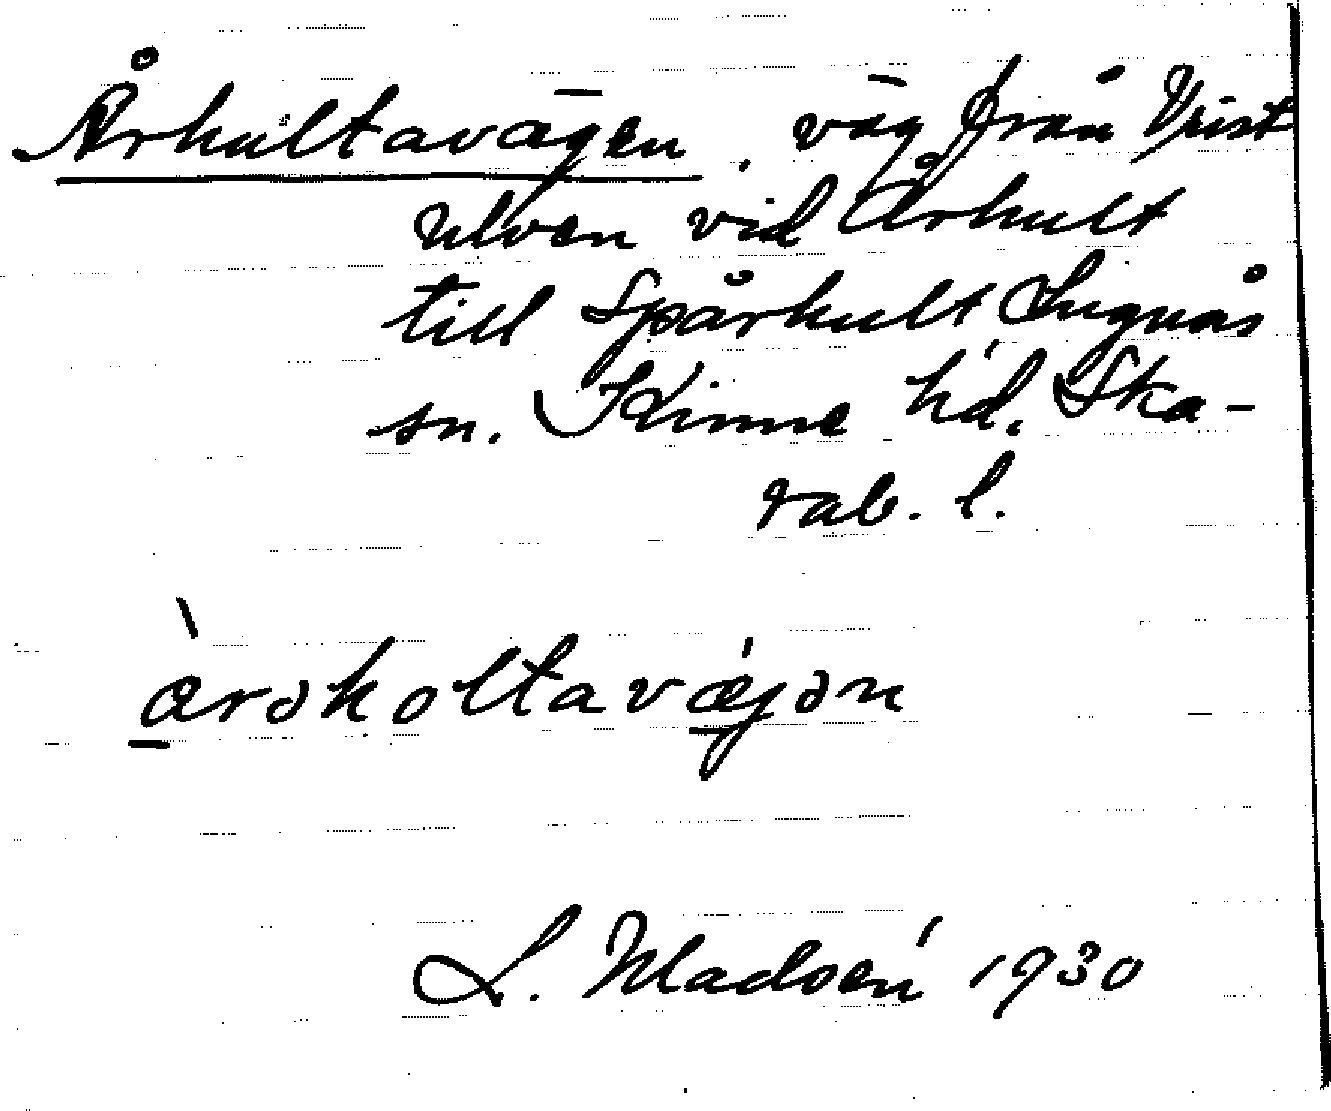 Århultavägen, väg från Vrist
ulven vid Århult
till Spårhult Lugnås
sn. Kinne hd. Ska-
rab. l.
àrəholtavǽjən
L. Wladoén 1930